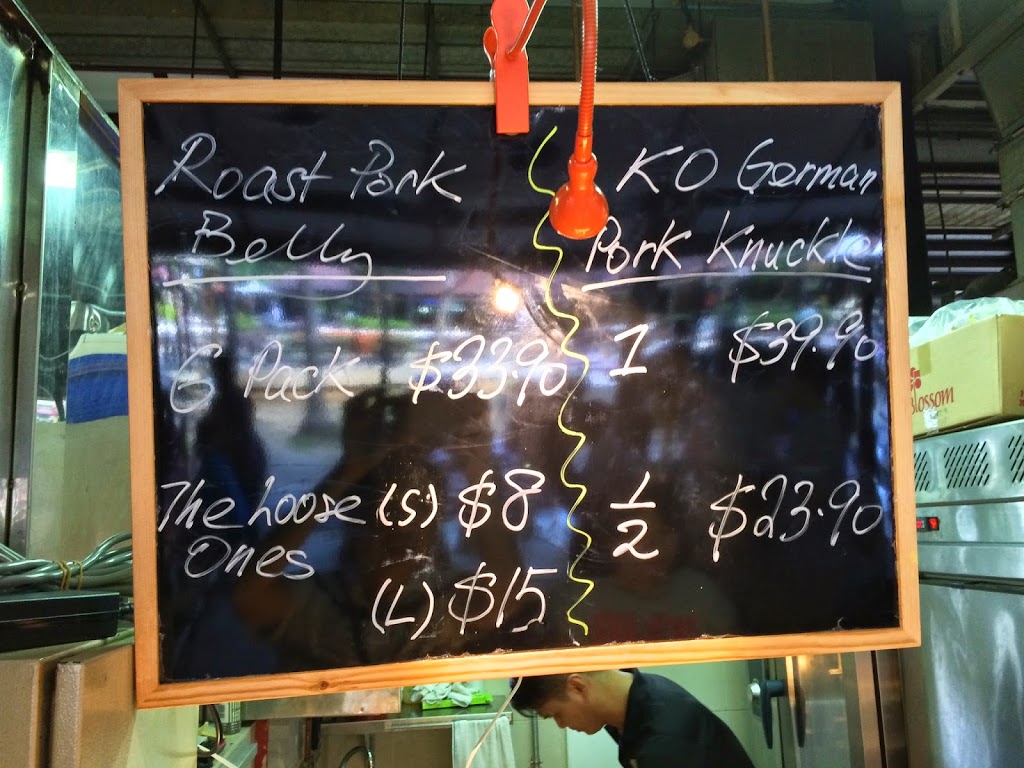 Roast Pork
Belly
6 Pack $33.90
The Loose (S) $8
Ones
(L) $15
KO German
Pork Knuckle
1 $39.90
1/2 $23.90
Blossom